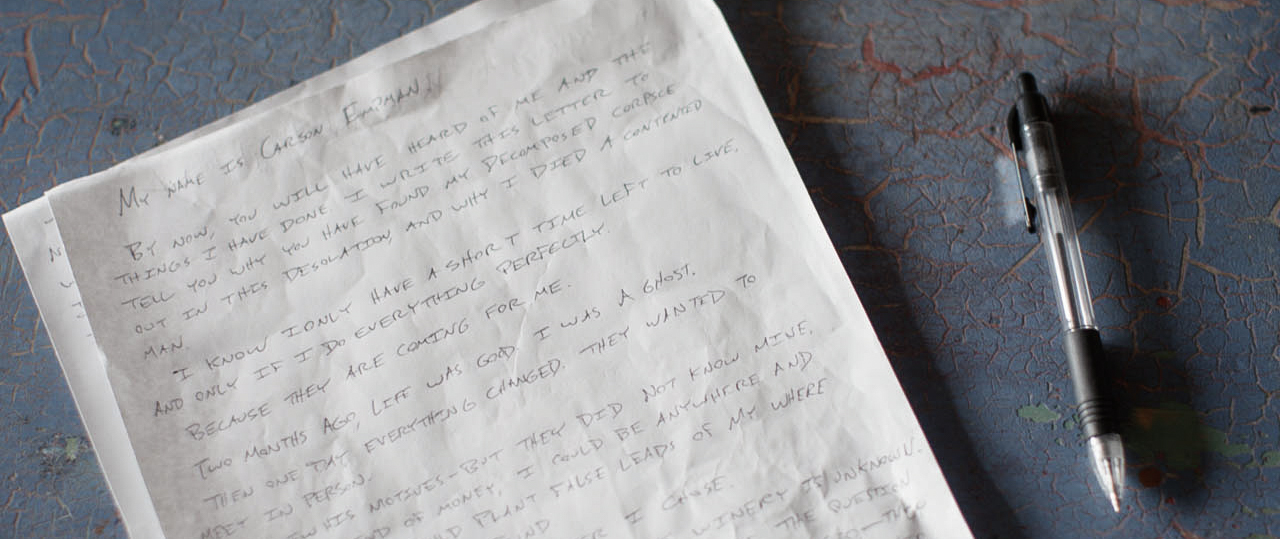 MY NAME IS CARSON
BY NOW, YOU WILL HAVE HEARD OF ME AND THE
THINGS I HAVE DONE I WRITE THIS LETTER TO
TELL YOU WHY YOU HAVE FOUND MY DECOMPOSED CORPSE
OUT IN THIS DESOLATION, AND WHY I DIED A CONTENTED
MAN.
I KNOW I ONLY HAVE A SHORT TIME LEFT TO LIVE,
AND ONLY IF I DO EVERYTHING PERFECTLY.
BECAUSE THEY ARE COMING FOR ME.
TWO MONTHS AGO, LIFE WAS GOOD I WAS A GHOST.
THEN ONE DAY EVERYTHING CHANGED. THEY WANTED TO
MEET IN PERSON.
HIS MOTIVES-BUT THEY DID NOT KNOW MINE.
OF MONEY, I COULD BE ANYWHERE AND
PLANT FALSE LEADS OF MY WHERE
I CHOSE.
WINERY IS UNKNOWN.
THE QUESTION